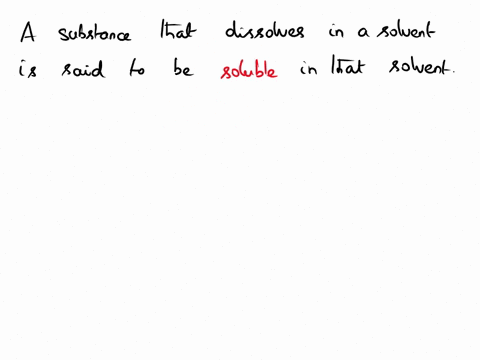 A substance that dissolves in a solvent
is said to be soluble in that solvent.